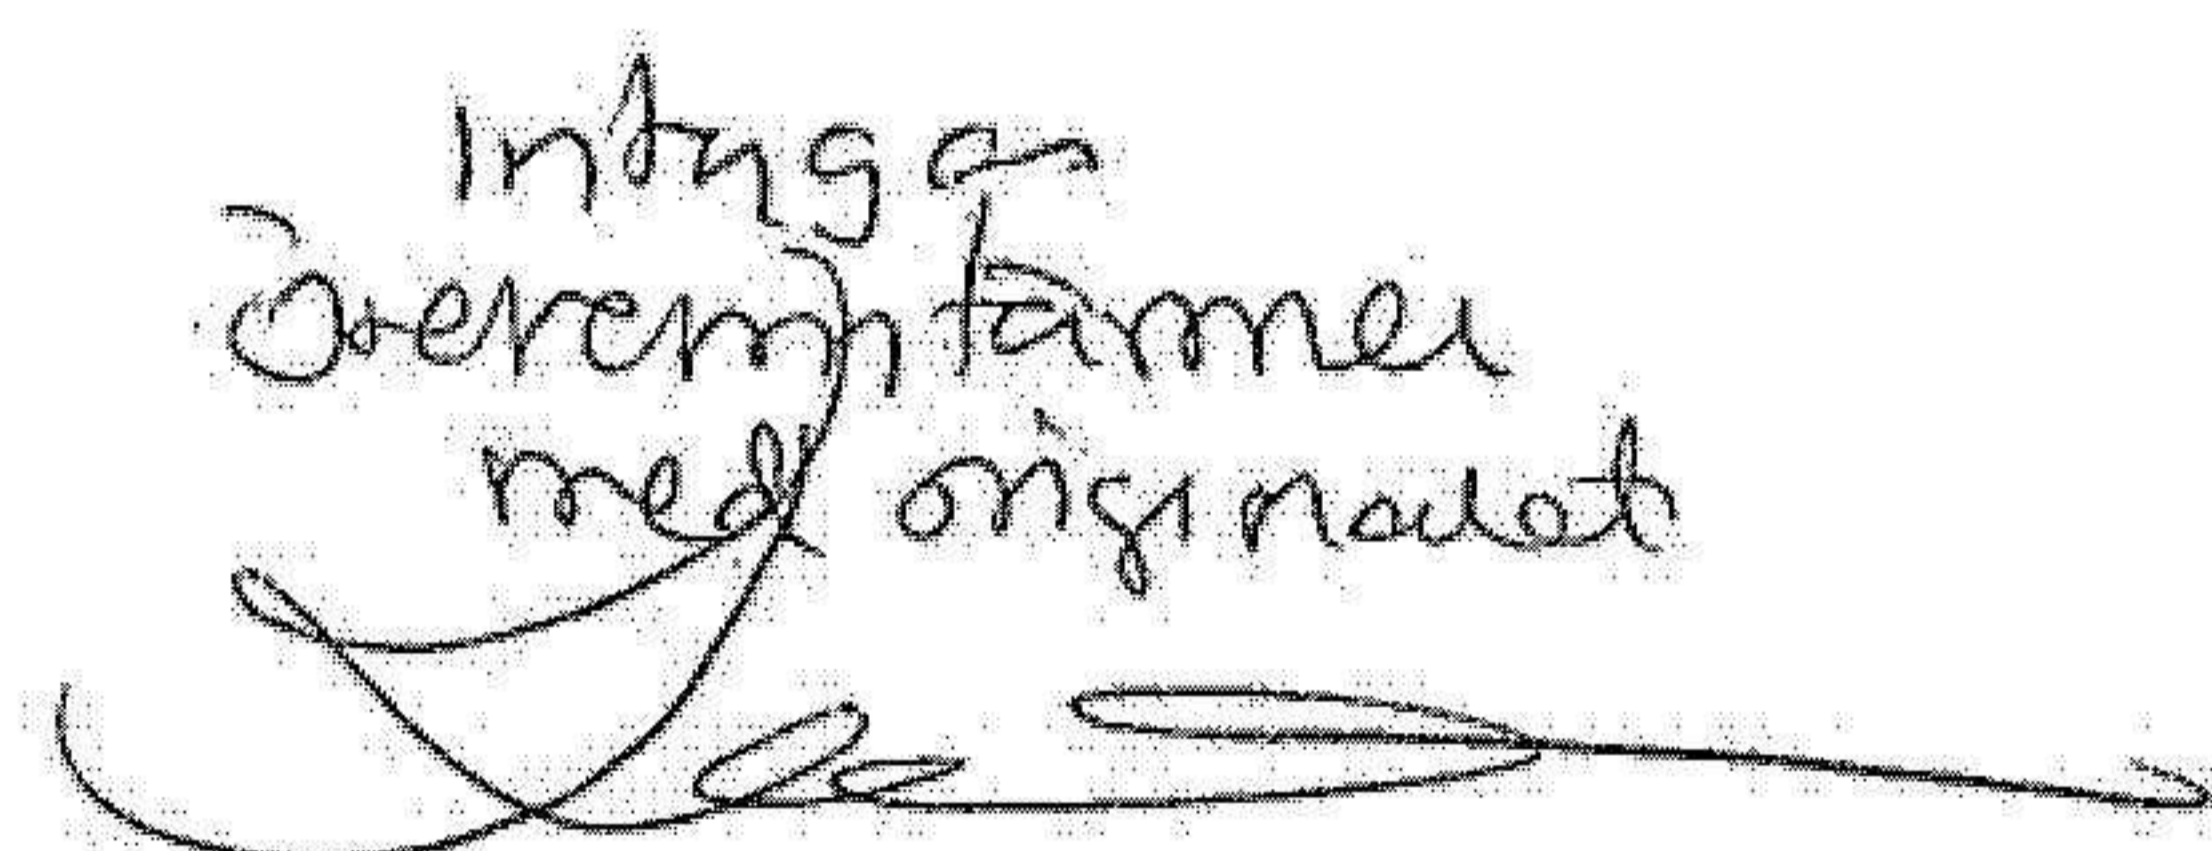 Intygar
Överensstämmer
med originalet